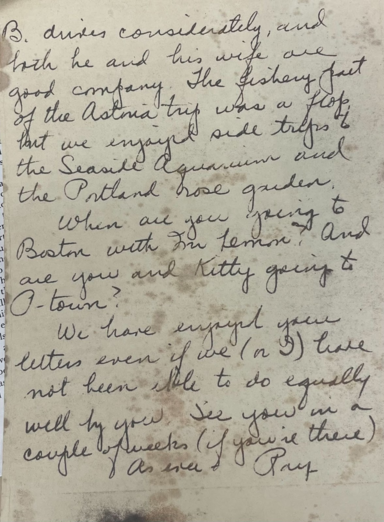 B. drives considerately, and
both he and his wife are
good company. The fishery part
of the Astoria trip was a flop,
but we enjoyed side trips to
the Seaside Aquarium and
the Portland rose garden.
When are you going to
Boston with Lemon? And
are you and Kitty going to
P-town?
We have enjoyed your
letters even if we (or I) have
not been able to do equally
well by you. See you in a
couple of weeks (if you're there)
As ever